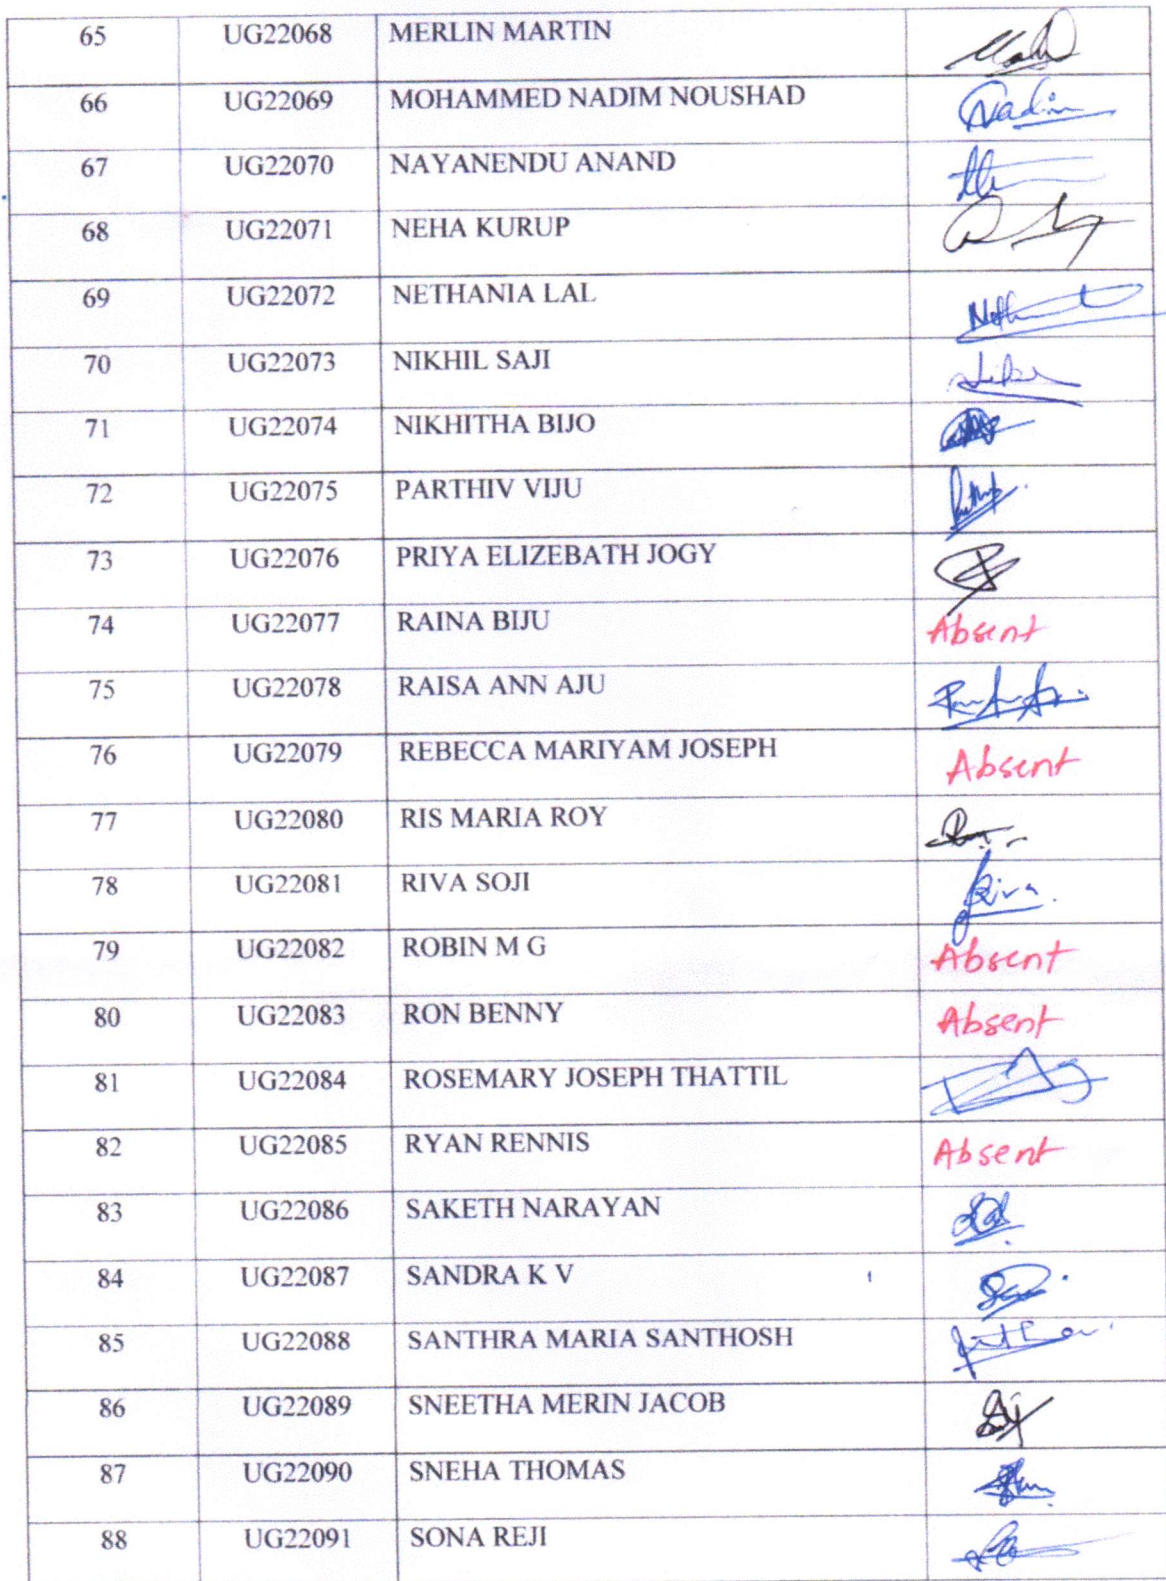 65 UG22068 MERLIN MARTIN
66 UG22069 MOHAMMED NADIM NOUSHAD Nadim
67 UG22070 NAYANENDU ANAND
68 UG22071 NEHA KURUP
69 UG22072 NETHANIA LAL
70 UG22073 NIKHIL SAJI
71 UG22074 NIKHITHA BIJO
72 UG22075 PARTHIV VIJU
73 UG22076 PRIYA ELIZEBATH JOGY
74 UG22077 RAINA BIJU Absent
75 UG22078 RAISA ANN AJU
76 UG22079 REBECCA MARIYAM JOSEPH Absent
77 UG22080 RIS MARIA ROY
78 UG22081 RIVA SOJI Riva
79 UG22082 ROBIN M G Absent
80 UG22083 RON BENNY Absent
81 UG22084 ROSEMARY JOSEPH THATTIL
82 UG22085 RYAN RENNIS Absent
83 UG22086 SAKETH NARAYAN
84 UG22087 SANDRA K V
85 UG22088 SANTHRA MARIA SANTHOSH
86 UG22089 SNEETHA MERIN JACOB
87 UG22090 SNEHA THOMAS
88 UG22091 SONA REJI